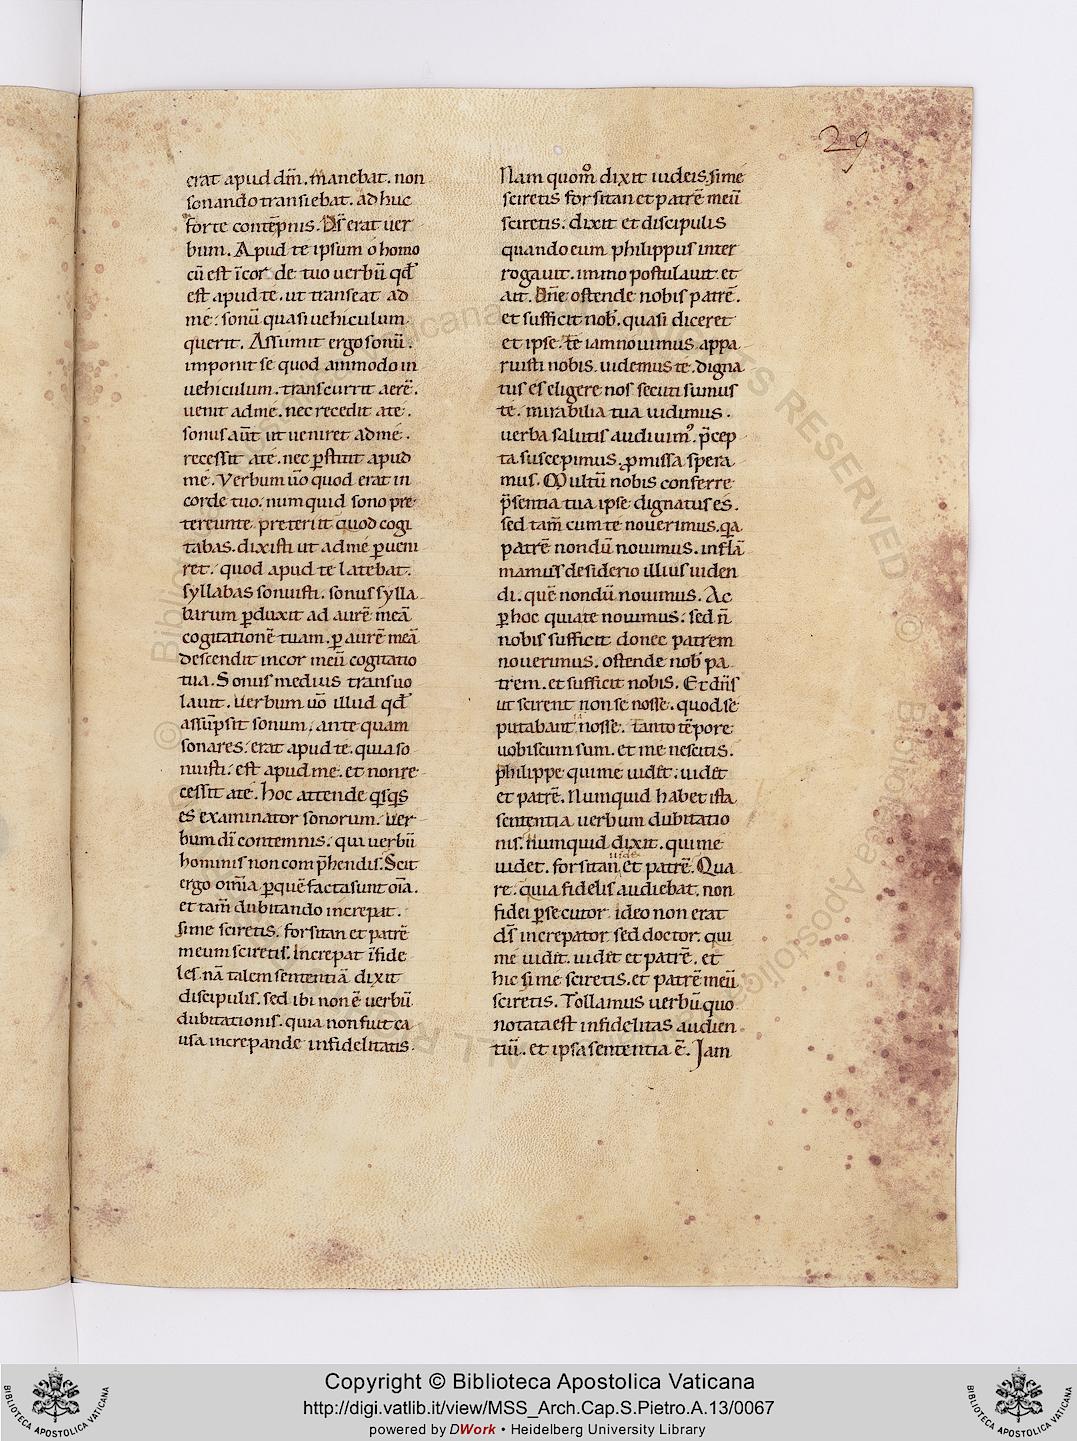 29
erat apud dm̄. manebat. non
sonando transiebat. adhuc
forte contēpnis. Ds̄ erat uer
bum. Apud te ipsum o homo
cū est ī cor de tuo uerbū qđ
est apud te. ut transeat ad
me: sonū quasi uehiculum
querit. Assumit ergo sonū.
imponit se quod ammodo in
uehiculum. transcurrit aerē.
uenit ad me. nec recedit a te.
sonus aūt ut ueniret ad me.
recessit a te. nec ꝑstitit apud
me. Verbum ūo quod erat in
corde tuo. numquid sono pre
tereunte preteriit quod cogi
tabas. dixisti ut ad me ꝑueni
ret. quod apud te latebat.
syllabas sonuisti. sonus sylla
barum ꝑduxit ad aurē meā
cogitationē tuam. ꝑ aurē meā
descendit in cor meū cogitatio
tua. Sonus medius transuo
lauit. uerbum ūo illud qđ
assūpsit sonum. ante quam
sonares. erat apud te. quia so
nuisti: est apud me. et non re
cessit a te. hoc attende qͥsqͥs
es examinator sonorum. uer
bum dī contemnis. qui uerbū
hominis non comp̄hendis. Scit
ergo om̄ia ꝑ quē facta sunt oīa.
et tam̄ dubitando increpat.
si me sciretis. forsitan et patrē
meum sciretis. Increpat īfide
les. nā talem sententiā dixit
discipulis. sed ibi non ē uerbū
dubitationis. quia non fuit ca
usa increpande infidelitatis.
Nam quom̄ dixit iudeis. si me
sciretis forsitan et patrē meū
sciretis. dixit et discipulis
quando eum philippus inter
rogauit. immo postulauit et
ait. Dn̄e ostende nobis patrē.
et sufficit nob̄. quasi diceret
et ipse. te iam nouimus. appa
ruisti nobis. uidemus te. digna
tus es eligere nos. secuti sumus
te. mirabilia tua uidimus.
uerba salutis audiuimꝰ. p̄cep
ta suscepimus. ꝓmissa spera
mus. Multū nobis conferre
p̄sentia tua ipse dignatus es.
sed tam̄ cum te nouerimus. qͣa
patrē nondū nouimus. inflā
mamus desiderio illius uiden
di. quē nondū nouimus. Ac
ꝑ hoc quia te nouimus: sed n̄
nobis sufficit donec patrem
nouerimus. ostende nob̄ pa
trem. et sufficit nobis. Et dn̄s
ut scirent non se nosse. quod se
putabant nosse. Tanto tēpore
uobiscum sum. et me nescitis.
philippe qui me uidēt. uidēt
et patrē. Numquid habet ista
sententia uerbum dubitatio
nis. Numquid dixit. qui me
uidet. forsitan uidet et patrē. Qua
re. quia fidelis audiebat. non
fidei ꝑsecutor. ideo non erat
ds̄ increpator sed doctor. qui
me uidit. uidit et patrē. et
hic si me sciretis. et patrē meū
sciretis. Tollamus uerbū quo
notata est infidelitas audien
tiū. et ipsa sententia ē. Iam
Copyright © Biblioteca Apostolica Vaticana
http://digi.vatlib.it/view/MSS_Arch.Cap.S.Pietro.A.13/0067
powered by DWork • Heidelberg University Library
BIBLIOTECA APOSTOLICA VATICANA
BIBLIOTECA APOSTOLICA VATICANA